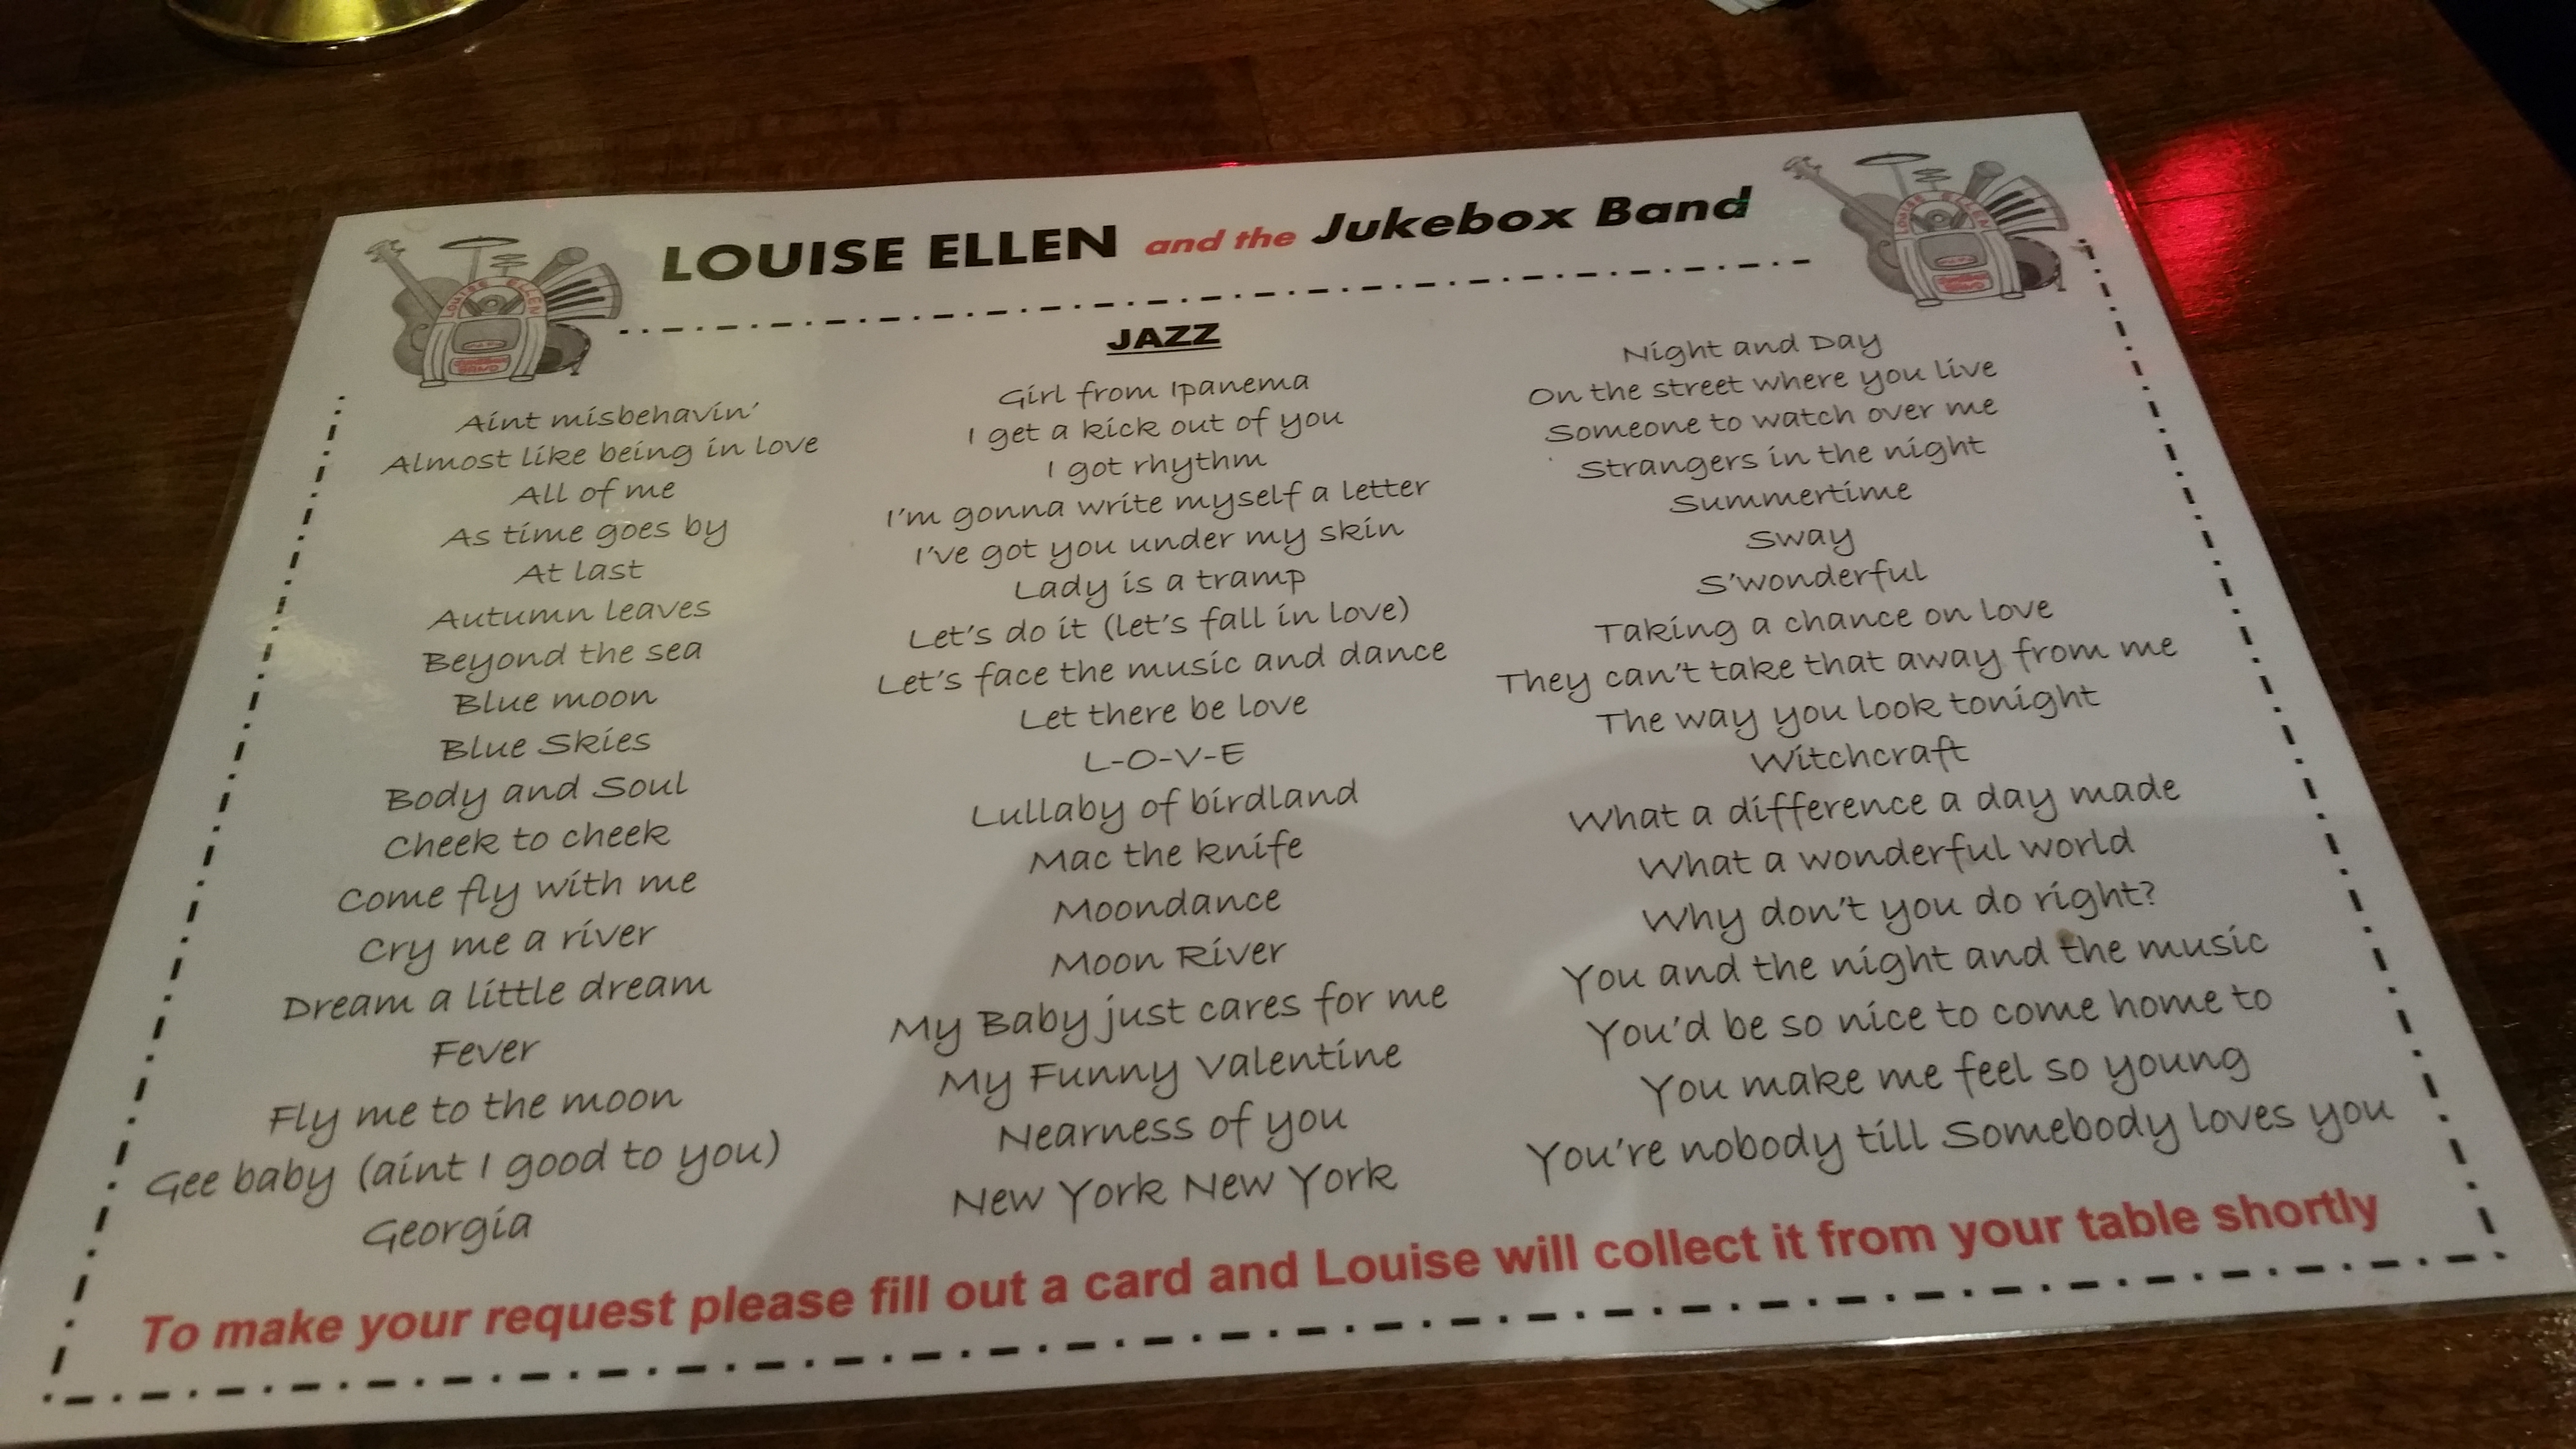 LOUISE ELLEN and the Jukebox Band
LOUISE ELLEN
LOUISE ELLEN
JAZZ
Aint misbehavin'
Almost like being in love
All of me
As time goes by
At last
Autumn leaves
Beyond the sea
Blue moon
Blue Skies
Body and Soul
Cheek to cheek
Come fly with me
Cry me a river
Dream a little dream
Fever
Fly me to the moon
Gee baby (aint I good to you)
Georgia
Girl from Ipanema
I get a kick out of you
I got rhythm
I'm gonna write myself a letter
I've got you under my skin
Lady is a tramp
Let's do it (let's fall in love)
Let's face the music and dance
Let there be love
L-O-V-E
Lullaby of birdland
Mac the knife
Moondance
Moon River
My Baby just cares for me
My Funny Valentine
Nearness of you
New York New York
Night and Day
On the street where you live
Someone to watch over me
Strangers in the night
Summertime
Sway
S'wonderful
Taking a chance on love
They can't take that away from me
The way you look tonight
Witchcraft
What a difference a day made
What a wonderful world
Why don't you do right?
You and the night and the music
You'd be so nice to come home to
You make me feel so young
You're nobody till Somebody loves you
To make your request please fill out a card and Louise will collect it from your table shortly